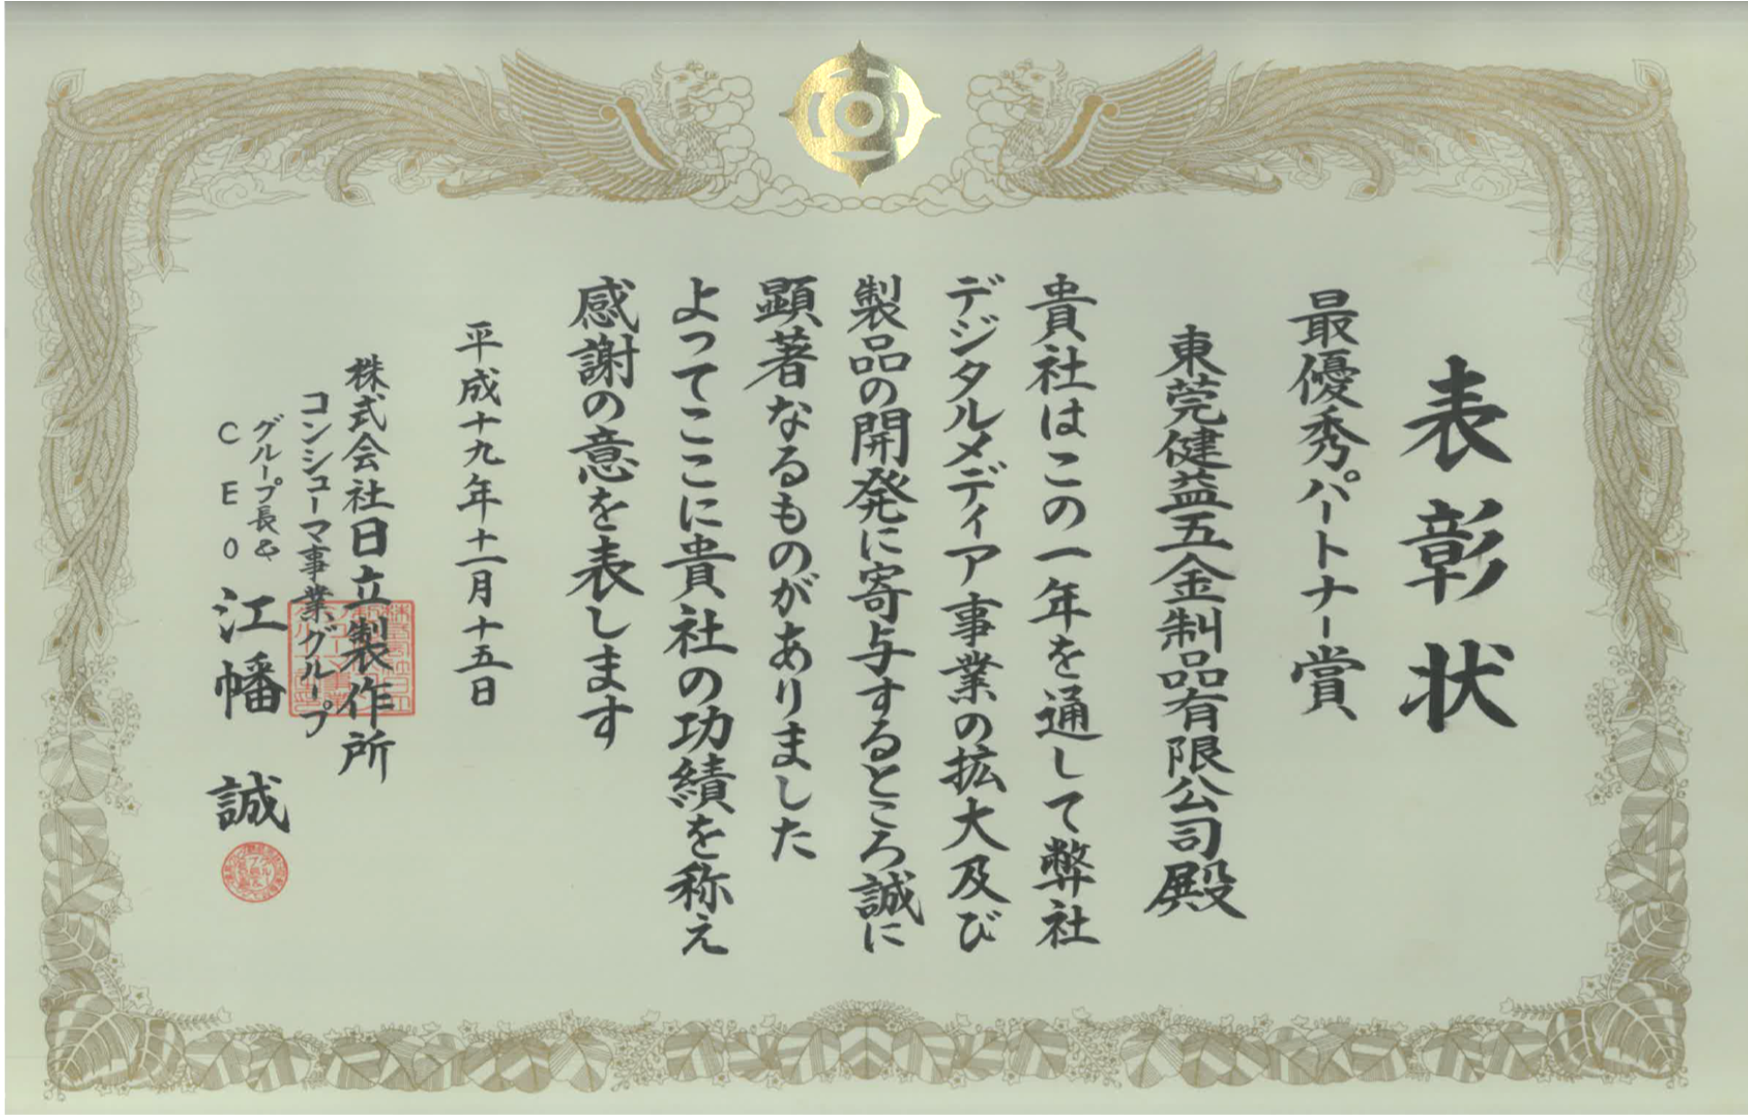 表彰状
最優秀パートナー賞
東莞健益五金制品有限公司殿
貴社はこの一年を通して弊社
デジタルメディア事業の拡大及び
製品の開発に寄与するところ誠に
顕著なるものがありました
よってここに貴社の功績を称え
感謝の意を表します
平成十九年十一月十五日
株式会社日立製作所
コンシューマ事業グループ
グループ長&
CEO 江幡 誠